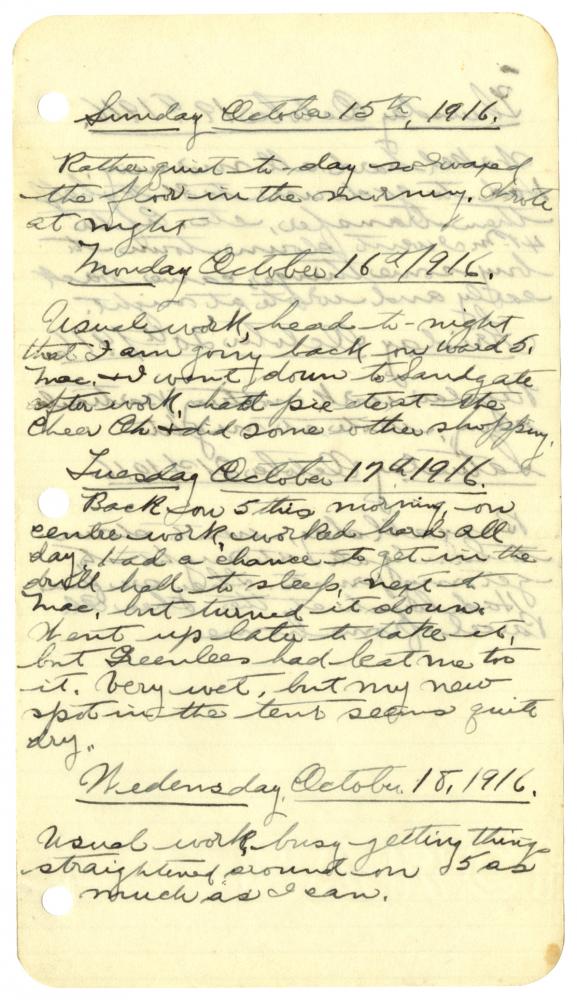 Sunday October 15th, 1916.
Rather quiet to-day so I waxed
the floor in the morning. Wrote
at night
Monday October 16th 1916.
Usual work, heard to-night
that I am going back on ward 5.
Mac. & I went down to Sandgate
after work, had pie at the
Cheer Oh & did some other shopping.
Tuesday October 17th 1916.
Back on 5 this morning, on
centre work, worked hard all
day. Had a chance to get in the
drill hall to sleep, next to
Mac, but turned it down.
Went up later to take it,
but Greenlees had beat me too
it. Very wet, but my new
spot in the tent seems quite
dry.
Wedensday, October 18, 1916.
Usual work, busy getting things
straightened around on 5 as
much as I can.